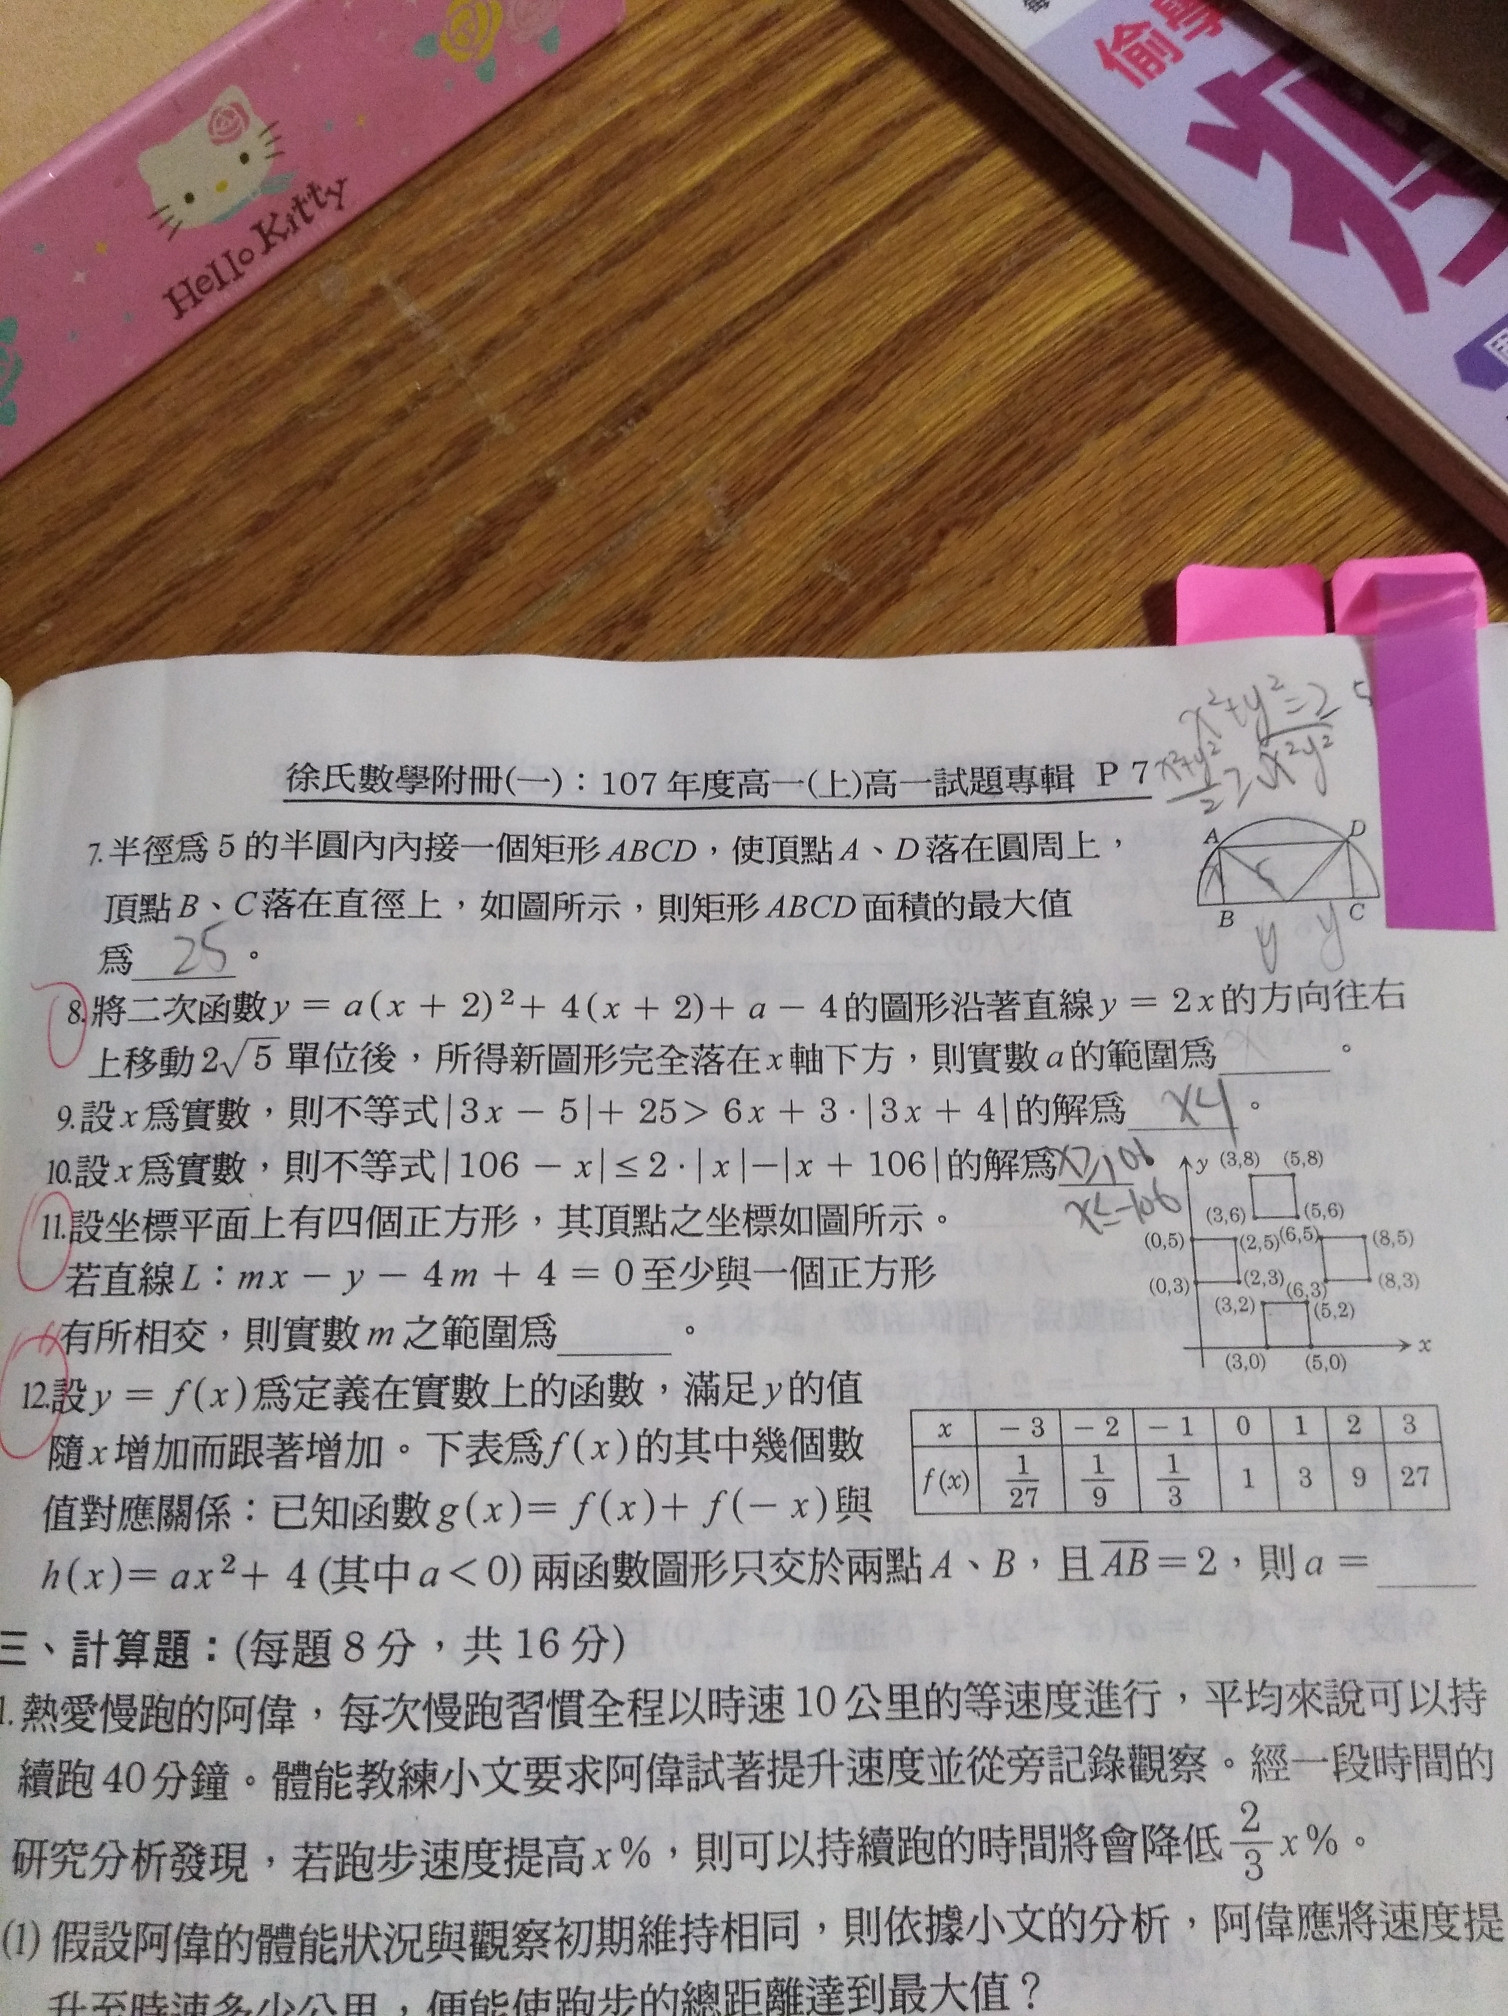 Hello Kitty
偷
x²+y²=25
x²+y²/2 ≥ √x²y²
徐氏數學附冊(一)：107年度高一(上)高一試題專輯 P 7
7.半徑為5的半圓內內接一個矩形ABCD，使頂點A、D落在圓周上，
頂點B、C落在直徑上，如圖所示，則矩形ABCD面積的最大值
為 25 。
A D
x 5
B C
y y
8.將二次函數y = a(x + 2)²+ 4(x + 2)+ a − 4的圖形沿著直線y = 2x的方向往右
上移動2√5單位後，所得新圖形完全落在x軸下方，則實數a的範圍為 。
9.設x為實數，則不等式|3x − 5|+ 25> 6x + 3·|3x + 4|的解為 x<1 。
10.設x為實數，則不等式|106 − x|≤2·|x|−|x + 106|的解為 x≥106
x≤−106
11.設坐標平面上有四個正方形，其頂點之坐標如圖所示。
若直線L：mx − y − 4m + 4 = 0至少與一個正方形
有所相交，則實數m之範圍為 。
y (3,8) (5,8)
(3,6) (5,6)
(0,5) (2,5) (6,5) (8,5)
(0,3) (2,3) (6,3) (8,3)
(3,2) (5,2)
x
(3,0) (5,0)
12.設y = f(x)為定義在實數上的函數，滿足y的值
隨x增加而跟著增加。下表為f(x)的其中幾個數
值對應關係：已知函數g(x)= f(x)+ f(−x)與
h(x)= ax²+ 4 (其中a<0) 兩函數圖形只交於兩點A、B，且AB=2，則a =
x −3 −2 −1 0 1 2 3
f(x) 1/27 1/9 1/3 1 3 9 27
三、計算題：(每題8分，共16分)
1.熱愛慢跑的阿偉，每次慢跑習慣全程以時速10公里的等速度進行，平均來說可以持
續跑40分鐘。體能教練小文要求阿偉試著提升速度並從旁記錄觀察。經一段時間的
研究分析發現，若跑步速度提高x%，則可以持續跑的時間將會降低2/3x%。
(1) 假設阿偉的體能狀況與觀察初期維持相同，則依據小文的分析，阿偉應將速度提
升至時速多少公里，便能使跑步的總距離達到最大值？